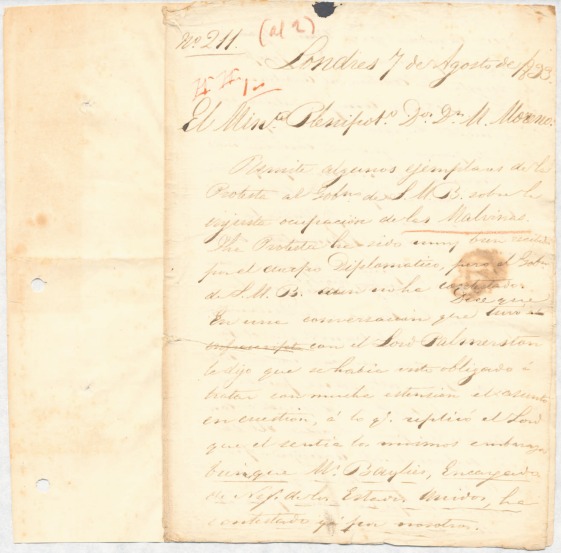 Nº 211. (al 2)
Londres 7 de Agosto de 1833.
El Min.tº Plenipot.º Dn. Dn. M. Moreno.
Remite algunos ejemplares de la
Protesta al Gobno. de S. M. B. sobre la
injusta ocupación de las Malvinas.
Dha Protesta ha sido muy bien recibida
por el cuerpo Diplomático, pero el Gobno.
de S. M. B. aun no ha contestado.
Dice que
En una conversacion que tuvo el
infrascripto con el Lord Palmerston
le dijo que se habia visto obligado á
tratar con mucha estension el asunto
en cuestion, á lo q.e replicó el Lord
que el sentia los mismos embarazos
bunque Mr. Baylies, Encargado
de Neg.s de los Estados Unidos, ha
contestado ya por nosotros.